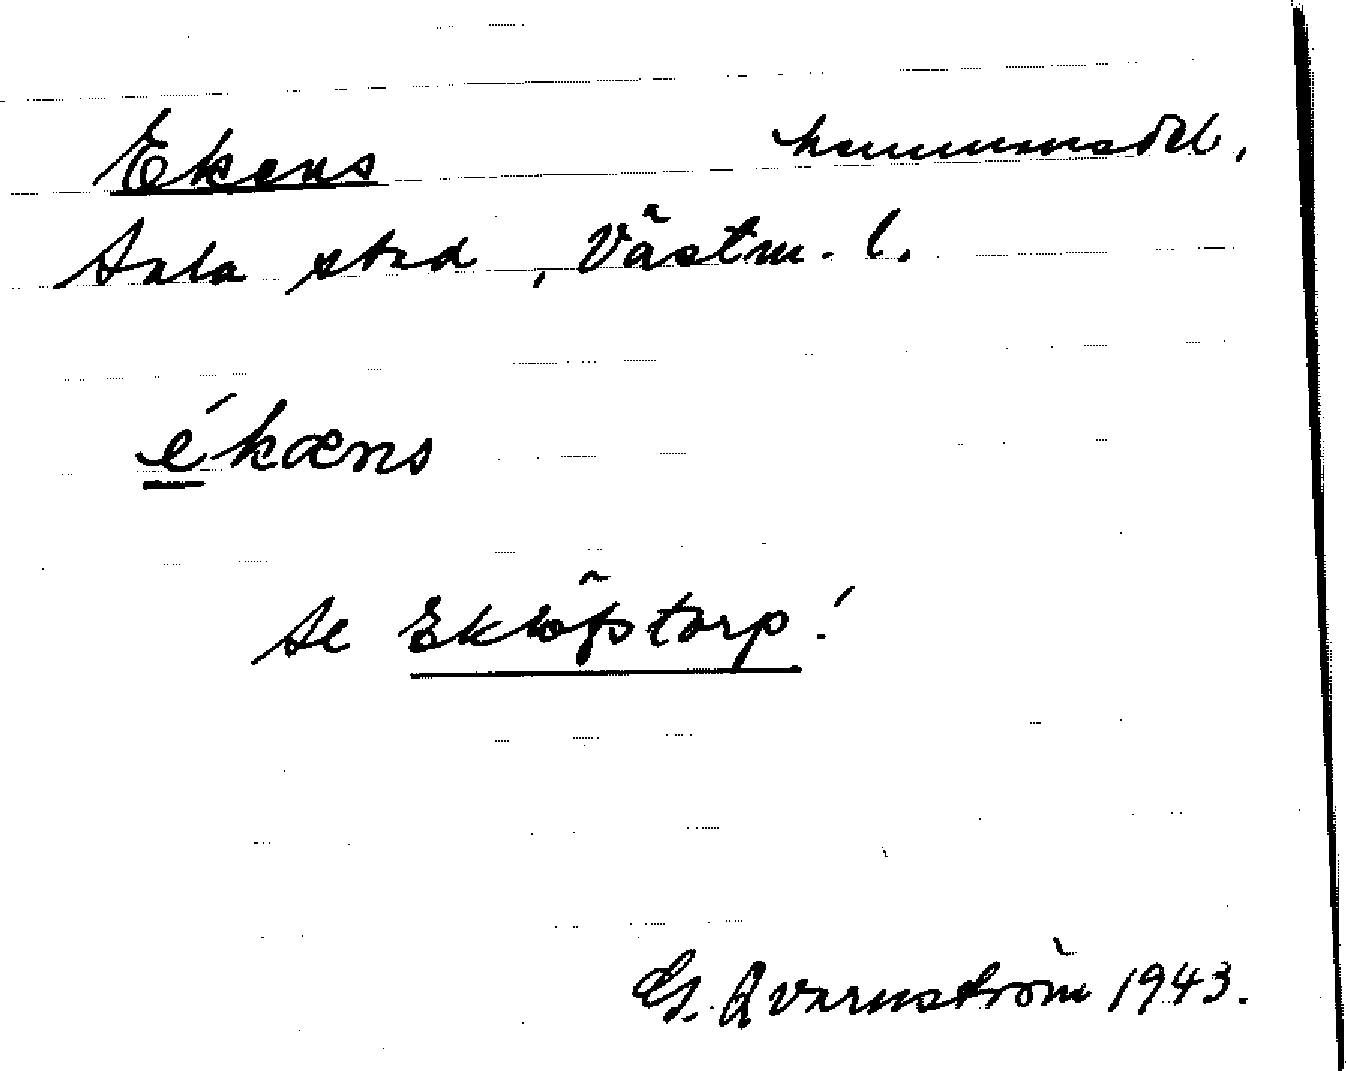 Ekens hemmansdel,
Sala stad, Västm. l.
ékæns
se Eklöfstorp!
G. Qvarnström 1943.